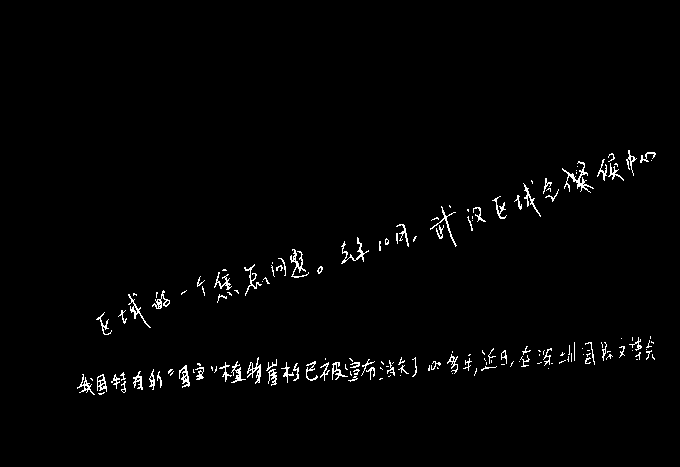 区域的一个焦点问题。去年10月,武汉区域气候中心
我国特有的“国宝”植物崖柏已被宣布消失了100多年,近日,在深圳国际文博会